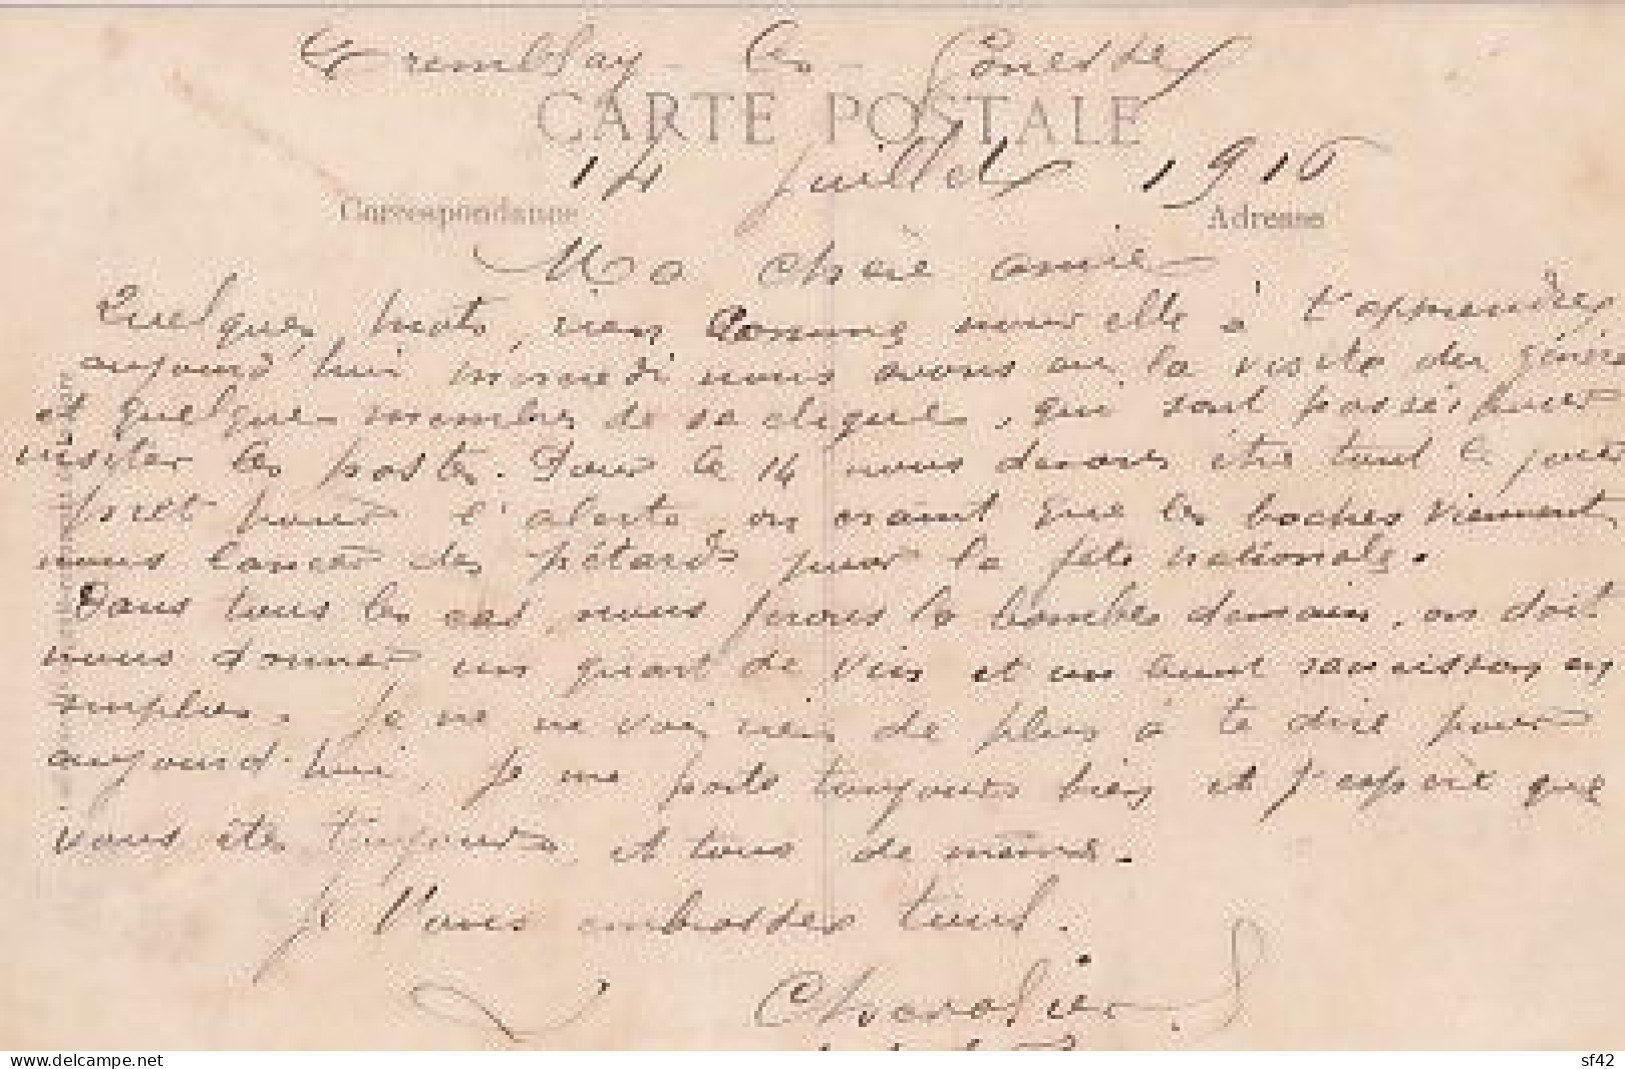 Tremblay-les-Gonesse
CARTE POSTALE
14 juillet 1916
Correspondance
Adresse
Ma chère amie
Quelques mots, rien comme nouvelle à t'apprendre
aujourd'hui mercredi nous avons eu la visite du général
et quelques membres de sa clique, qui sont passés pour
visiter les postes. Pour le 14 nous devons être tout le jour
prêt pour l'alerte, on craint que les boches viennent
nous lancer des pétards pour la fête nationale.
Dans tous les cas nous ferons la bombes demain, on doit
nous donner un quart de vin et un saucisson en
emplus. Je ne ne voij rien de plus à te dire pour
aujourd'hui, je me porte toujours bien et j'espère que
vous êtes toujours et tous de même.
Je vous embrasses tous.
Chevalier
sf42
delcampe.net